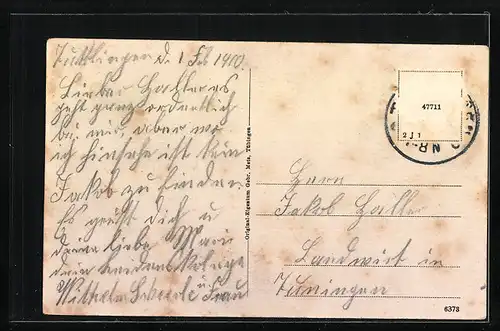 Tuttlingen d. 1 Feb 1910.
Lieber Haller es
geht ganz ordentlich
bei mir, aber wo
ich hinsehe ist kein
Jakob zu finden
Es grüßt dich u
deine liebe Marie
dein
Wilhelm u. Frau
Original-Eigentum Gebr. Metz, Tübingen
47711
2 J 1
Herrn
Jakob Haller
Landwirt in
Tuningen
6378